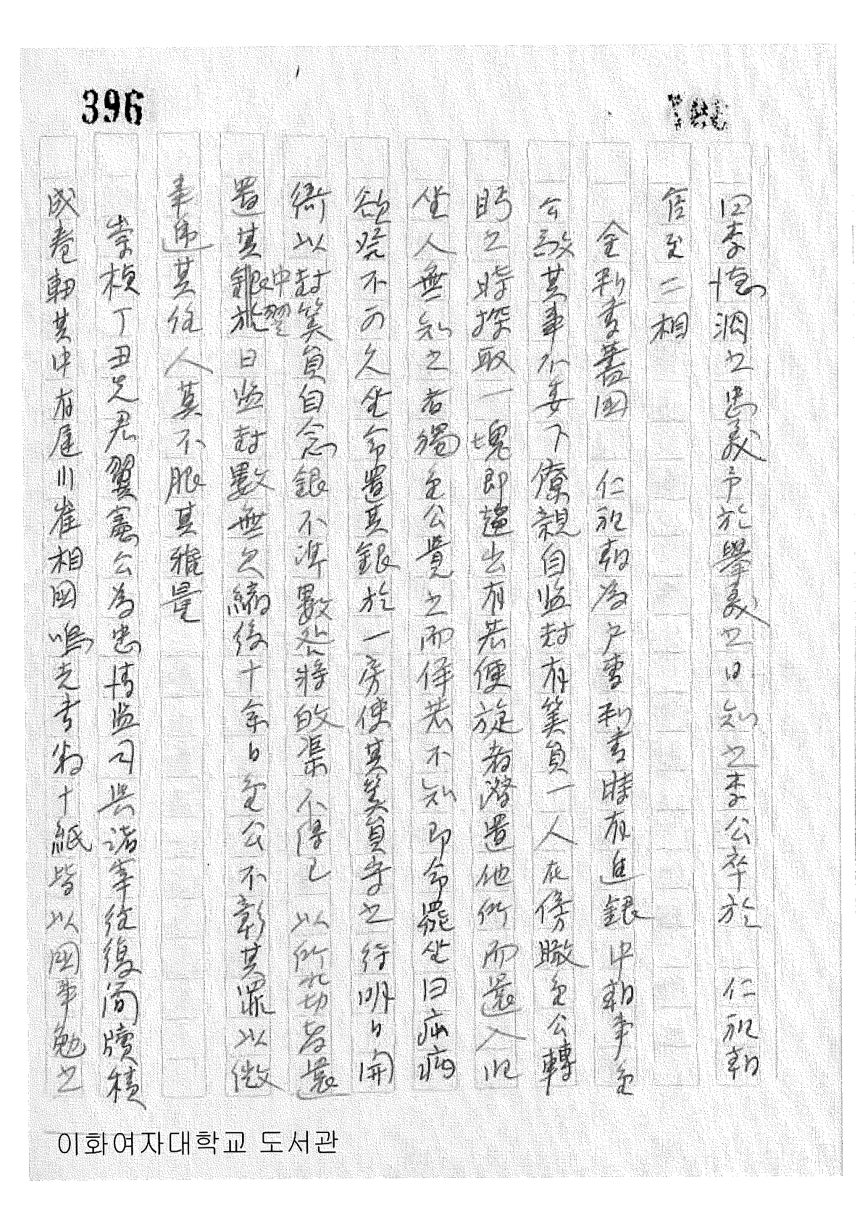 396
曰李德泂之忠義予於擧義之日知之李公卒於 仁祖朝
官至二相
金判書蓍國 仁祖朝爲戶曹判書時有進銀中朝事金
公敬其事不委下僚親自監封有筭員一人在傍瞰金公轉
眄之時探取一塊即趨出有若便旋者潛置他所而還入旧
坐人無知之者獨金公覺之而佯若不知即令罷坐曰疝病
欲発不可久坐命置其銀於一房使其筭員守之待明日開
衙以封筭員自念銀不準數必將的渠不得已以所窃者還
置其銀於中翌日監封數無欠縮後十余日金公不彰其罪以微
事逓其任人莫不服其雅量
崇楨丁丑兄君翼憲公為忠情監司與諸宰往復简牘積
成卷軸其中有遅川崔相國鳴吉書翁十紙皆以國事勉之
이화여자대학교 도서관